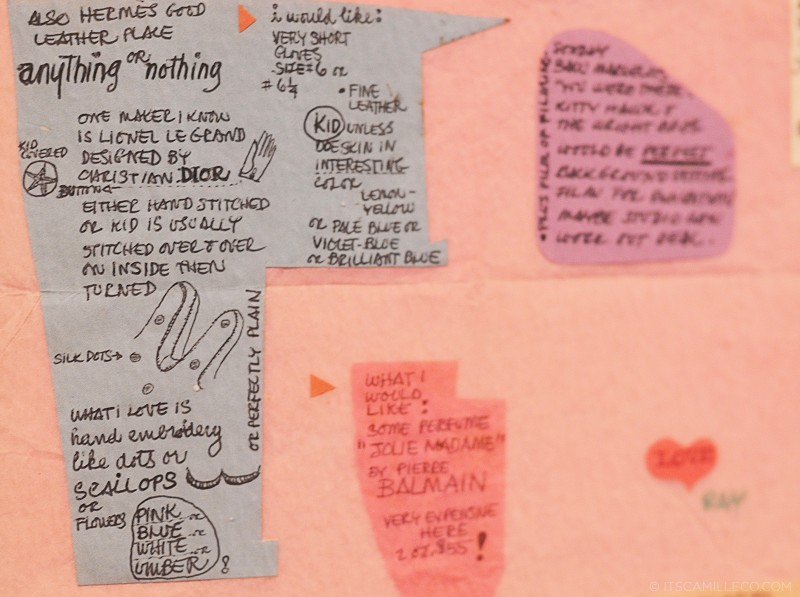 ALSO HERMES GOOD
LEATHER PLACE
anything OR nothing
ONE MAKER I KNOW
IS LIONEL LE GRAND
DESIGNED BY
CHRISTIAN DIOR
KID
COVERED
BUTTON
EITHER HAND STITCHED
OR KID IS USUALLY
STITCHED OVER & OVER
ON INSIDE THEN
TURNED
SILK DOTS→
OR PERFECTLY PLAIN
WHAT I LOVE IS
hand embroidery
like dots or
SCALLOPS
OR
FLOWERS
PINK or
BLUE or
WHITE or
UMBER!
i would like:
VERY SHORT
GLOVES
SIZE #6 or
#6¼
• FINE
LEATHER
KID UNLESS
DOESKIN IN
INTERESTING
COLOR
LEMON-
YELLOW
OR PALE BLUE OR
VIOLET-BLUE
or BRILLIANT BLUE
WHAT I
WOULD
LIKE:
SOME PERFUME
"JOLIE MADAME"
BY PIERRE
BALMAIN
VERY EXPENSIVE
HERE
2 OZ. $55!
SUNDAY
"YOU WERE THERE"
KITTY HAWK &
THE WRIGHT BROS.
WOULD BE PERFECT
BACKGROUND
MAYBE STUDIO
LOVE
RAY
© ITSCAMILLECO.COM